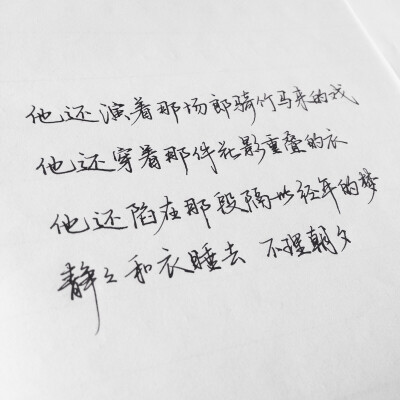 他还演着那场郎骑竹马来的戏
他还穿着那件花影重叠的衣
他还陷在那段隔世经年的梦
静々和衣睡去 不理朝夕